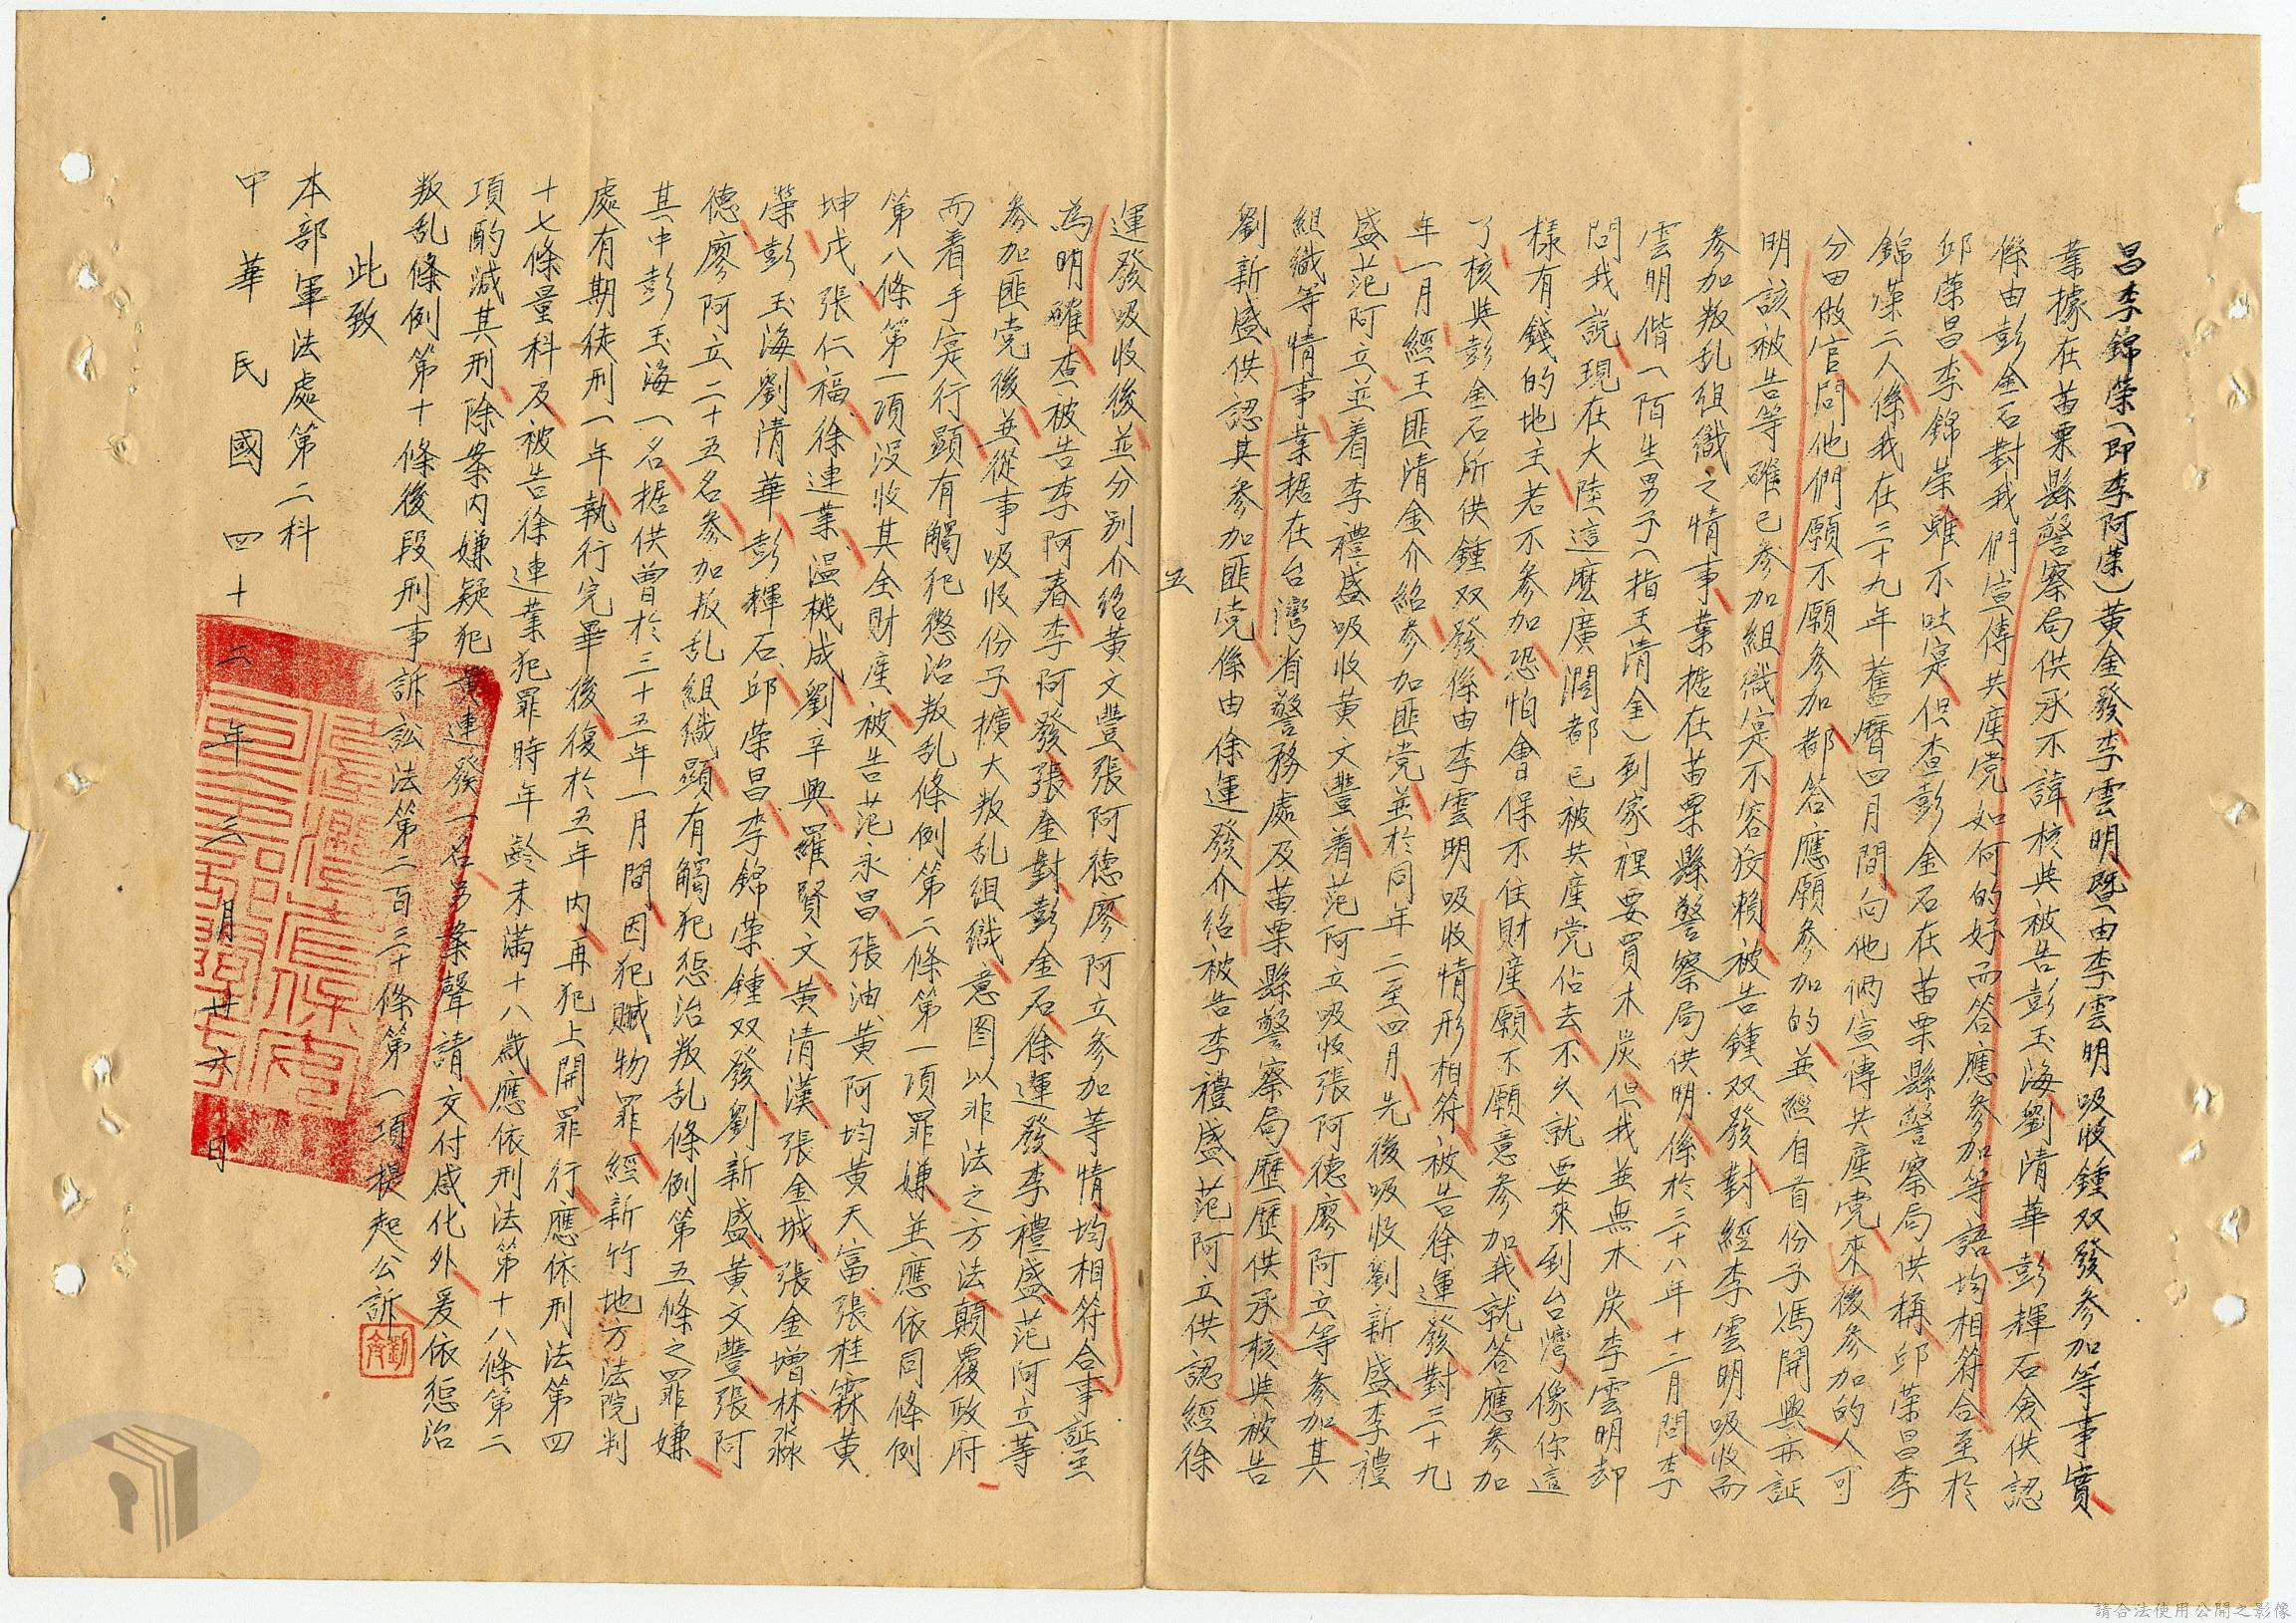 昌李錦荣(即李阿荣)黃金發李雲明暨由李雲明吸收鍾双發参加等事實
業據在苗栗縣警察局供承不諱核與被告彭玉海劉清華彭輝石僉供認
係由彭金石對我們宣傳共産党如何的好而答應参加等語均相符合至於
邱荣昌李錦荣雖不吐实但查彭金石在苗栗縣警察局供稱邱荣昌李
錦荣二人係我在三十九年舊曆四月間向他倆宣傳共産党來後参加的人可
分田做官問他們願不願参加都答應願参加的並經自首份子馮開興亦証
明該被告等確已参加組織实不容狡賴被告鍾双發對經李雲明吸收而
参加叛乱組織之情事業据在苗栗縣警察局供明係於三十八年十二月間李
雲明偕(一陌生男子(指王清金)到家裡要買木炭但我並無木炭李雲明却
問我說現在大陸這麽廣濶都已被共産党佔去不久就要來到台灣像你這
樣有錢的地主若不参加恐怕會保不住財産願不願意参加我就答應参加
了核與彭金石所供鍾双發係由李雲明吸收情形相符被告徐運發對三十九
年一月經王匪清金介紹参加匪党並於同年二至四月先後吸收劉新盛李禮
盛范阿立並着李禮盛吸收黃文豐着范阿立吸收張阿德廖阿立等参加其
組織等情事業据在台灣省警務處及苗栗縣警察局歷歷供承核與被告
劉新盛供認其参加匪党係由徐運發介紹被告李禮盛范阿立供認經徐
五
運發吸收後並分別介紹黃文豐張阿德廖阿立参加等情均相符合事証至
為明確查被告李阿春李阿發張金對彭金石徐運發李禮盛范阿立等
参加匪党後並從事吸收份子擴大叛乱組織意图以非法之方法顛覆政府
而着手实行顯有觸犯懲治叛乱條例第二條第一項罪嫌並應依同條例
第八條第一項没收其全財産被告范永昌張油黃阿均黃天富張桂霖黃
坤戊張仁福徐連業温機成劉辛興羅賢文黃清漢張金城張金增林淼
荣彭玉海劉清華彭輝石邱荣昌李錦荣鍾双發劉新盛黃文豐張阿
德廖阿立二十五名参加叛乱組織顯有觸犯惩治叛乱條例第五條之罪嫌
其中彭玉海一名据供曾於三十五年一月間因犯贓物罪經新竹地方法院判
處有期徒刑一年執行完畢後復於五年内再犯上開罪行應依刑法第四
十七條量科及被告徐連業犯罪時年齡未滿十八歲應依刑法第十八條第二
項酌減其刑除案内嫌疑犯黃連發一名另案聲請交付感化外爰依惩治
叛乱條例第十條後段刑事訴訟法第二百三十條第一項提起公訴
此致
本部軍法處第二科
中華民國四十三年三月廿六日
請合法使用公開之影像